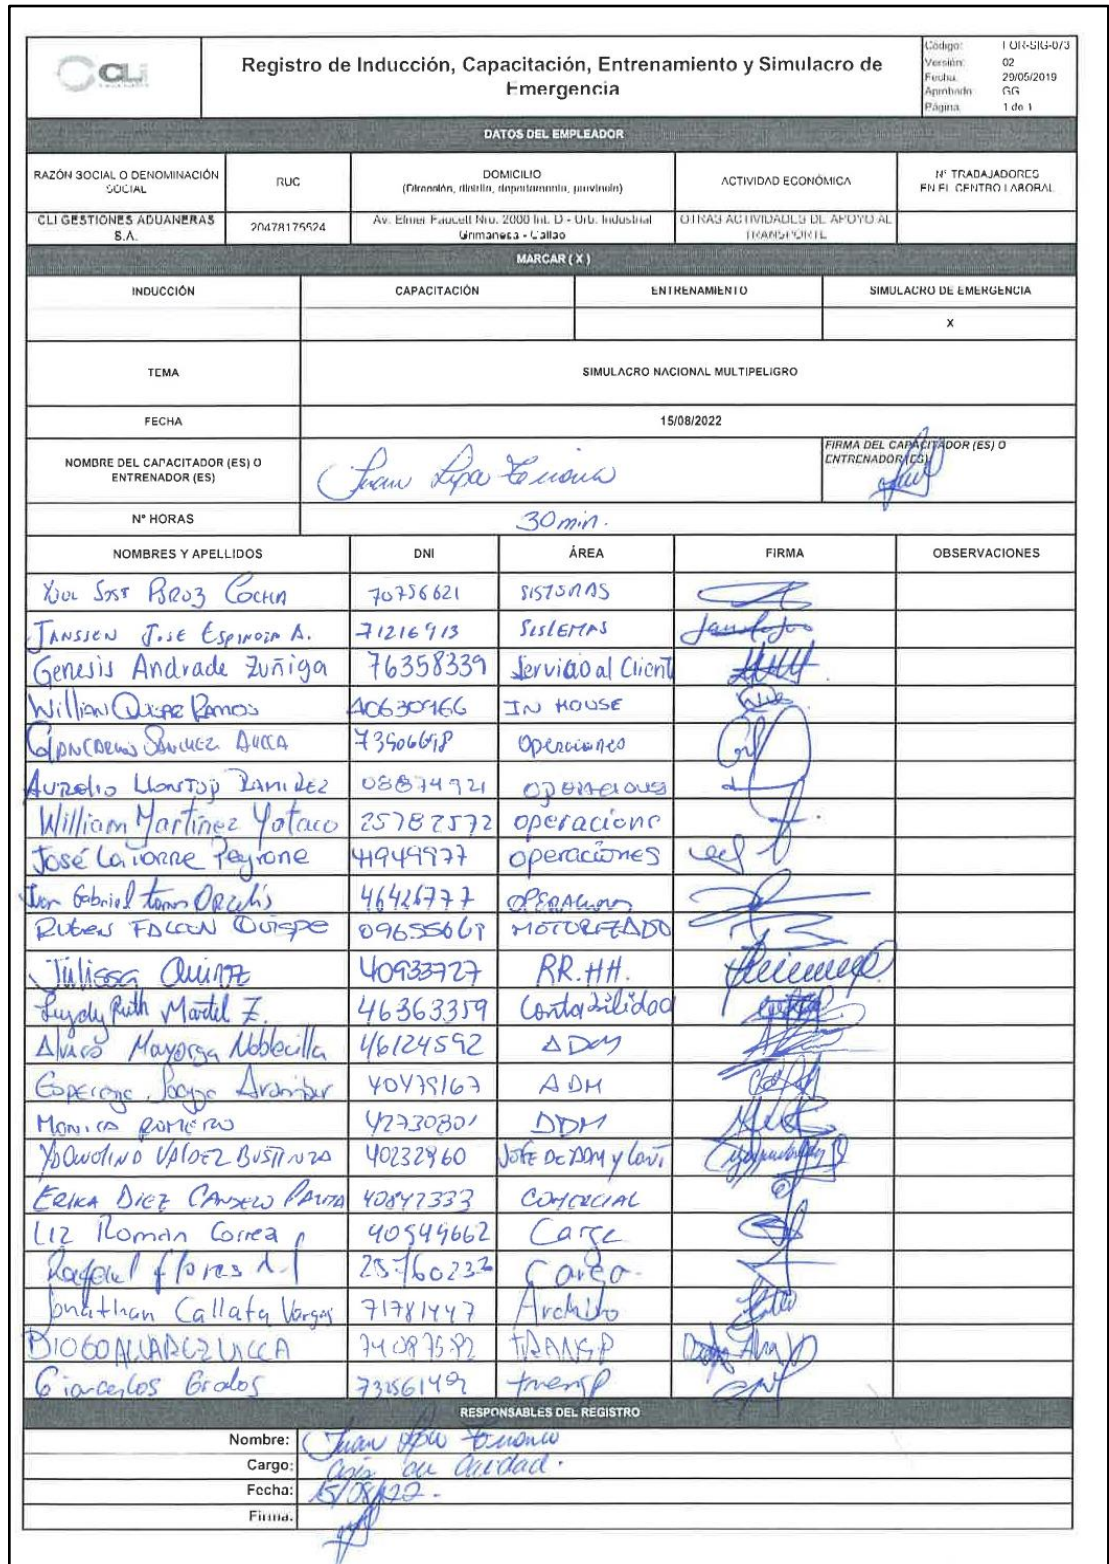 CLi
Registro de Inducción, Capacitación, Entrenamiento y Simulacro de
Emergencia
Código: FOR-SIG-073
Versión: 02
Fecha: 29/05/2019
Aprobado GG
Página: 1 de 1
DATOS DEL EMPLEADOR
RAZÓN SOCIAL O DENOMINACIÓN SOCIAL RUC DOMICILIO (Dirección, distrito, departamento, provincia) ACTIVIDAD ECONÓMICA N° TRABAJADORES EN EL CENTRO LABORAL
CLI GESTIONES ADUANERAS S.A. 20478175524 Av. Elmer Faucett Nro. 2000 Int. D - Urb. Industrial Grimanesa - Callao OTRAS ACTIVIDADES DE APOYO AL TRANSPORTE
MARCAR ( X )
INDUCCIÓN CAPACITACIÓN ENTRENAMIENTO SIMULACRO DE EMERGENCIA
X
TEMA SIMULACRO NACIONAL MULTIPELIGRO
FECHA 15/08/2022
NOMBRE DEL CAPACITADOR (ES) O ENTRENADOR (ES) Juan FIRMA DEL CAPACITADOR (ES) O ENTRENADOR (ES)
N° HORAS 30 min.
NOMBRES Y APELLIDOS DNI ÁREA FIRMA OBSERVACIONES
70756621 SISTEMAS
JANSSEN JOSE ESPINOZA A. 71216913 SISTEMAS
Genesis Andrade Zuñiga 76358339 Servicio al Client
Willian Ramos IN HOUSE
SANCHEZ Operaciones
AURELIO LLONTOP RAMIREZ 08874921 OPERACIONES
William Martinez Yataco 25782572 operacione
José Latorre Peyrone 41949977 operaciones
Gabriel 46426777 OPERACIONES
RUBEN FALCON QUISPE MOTORIZADO
Julissa 40933727 RR.HH.
Ruth Martel Z. 46363359 Contabilidad
Alvaro Mayorga Noblecilla 46124592 ADM
40479167 ADM
MONICA ROMERO 42730801 ADM
VALDEZ BUSTINZA 40232960 JEFE DE ADM y
ERIKA DIEZ CANSECO 40842333 COMERCIAL
Liz Roman Correa 40549662 Carga
Rafael Flores Carga
Jonathan Callata Vargas 71781447 Archivo
DIOGO ALVAREZ 74087582 TRANSP
Giancarlos Grados transp
RESPONSABLES DEL REGISTRO
Nombre: Juan
Cargo: Calidad.
Fecha: 15/08/22.
Firma.